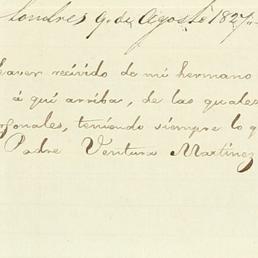 Londres 9. de Agosto 1827.
haver recivido de mi hermano
á quí arriba, de las quales
rgonales, teniendo siempre lo q
Padre Ventura Martinez